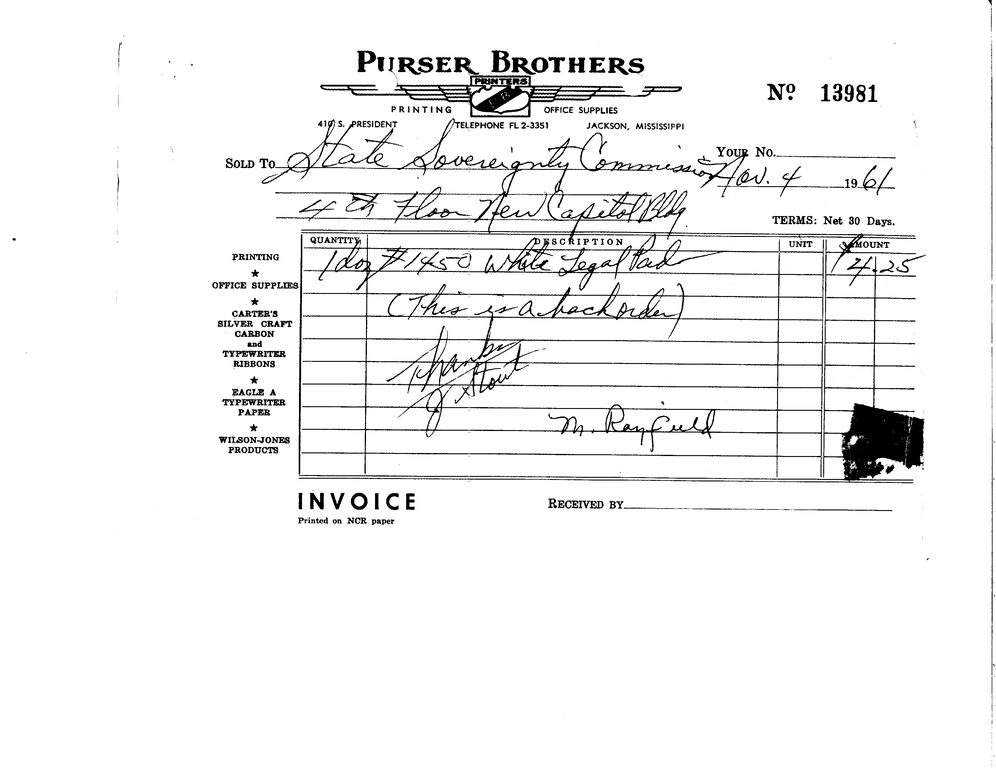 PURSER BROTHERS
PRINTERS
PRINTING OFFICE SUPPLIES
410 S. PRESIDENT TELEPHONE FL 2-3351 JACKSON, MISSISSIPPI
Nº 13981
YOUR No.
SOLD TO State Sovereignty Commission Nov. 4 1961
4th Floor New Capitol Bldg
TERMS: Net 30 Days.
QUANTITY DESCRIPTION UNIT AMOUNT
1 doz #1450 White Legal Pad $4.25
(This is a back order)
Thanks
J Stout
M. Rayfield
PRINTING
★
OFFICE SUPPLIES
★
CARTER'S
SILVER CRAFT
CARBON
and
TYPEWRITER
RIBBONS
★
EAGLE A
TYPEWRITER
PAPER
★
WILSON-JONES
PRODUCTS
INVOICE
Printed on NCR paper
RECEIVED BY